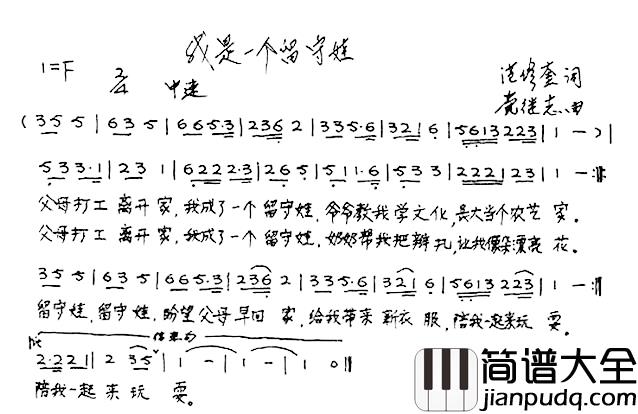 我是一个留守娃
1=F 2/4 中速
范修奎 词
党继志 曲
(35 5 | 63 5 | 665·3 | 236 2 | 335·6 | 321 6 | 5613 223 | 1 — ) |
533·1 | 23 1 | 6222·3 | 265 | 511·6 | 53 3 | 2221 23 | 1 — :||
父母打工 离开 家，我成了一个 留守娃，爷爷教我 学文化，长大当个农艺 家。
父母打工 离开 家，我成了一个 留守娃，奶奶帮我 把辫 扎，让我像朵漂亮 花。
35 5 | 63 5 | 665·3 | 236 2 | 335·6 | 321 6 | 5613 223 | 1 — :||
留守娃，留守 娃，盼望父母 早回 家，给我带来 新衣 服，陪我一起来玩 耍。
结束句
2·221 | 2 35 | 1 — | 1 — | 1 — | 1 0 ||
陪我一起 来 玩 耍。
简谱大全
jianpudq.com